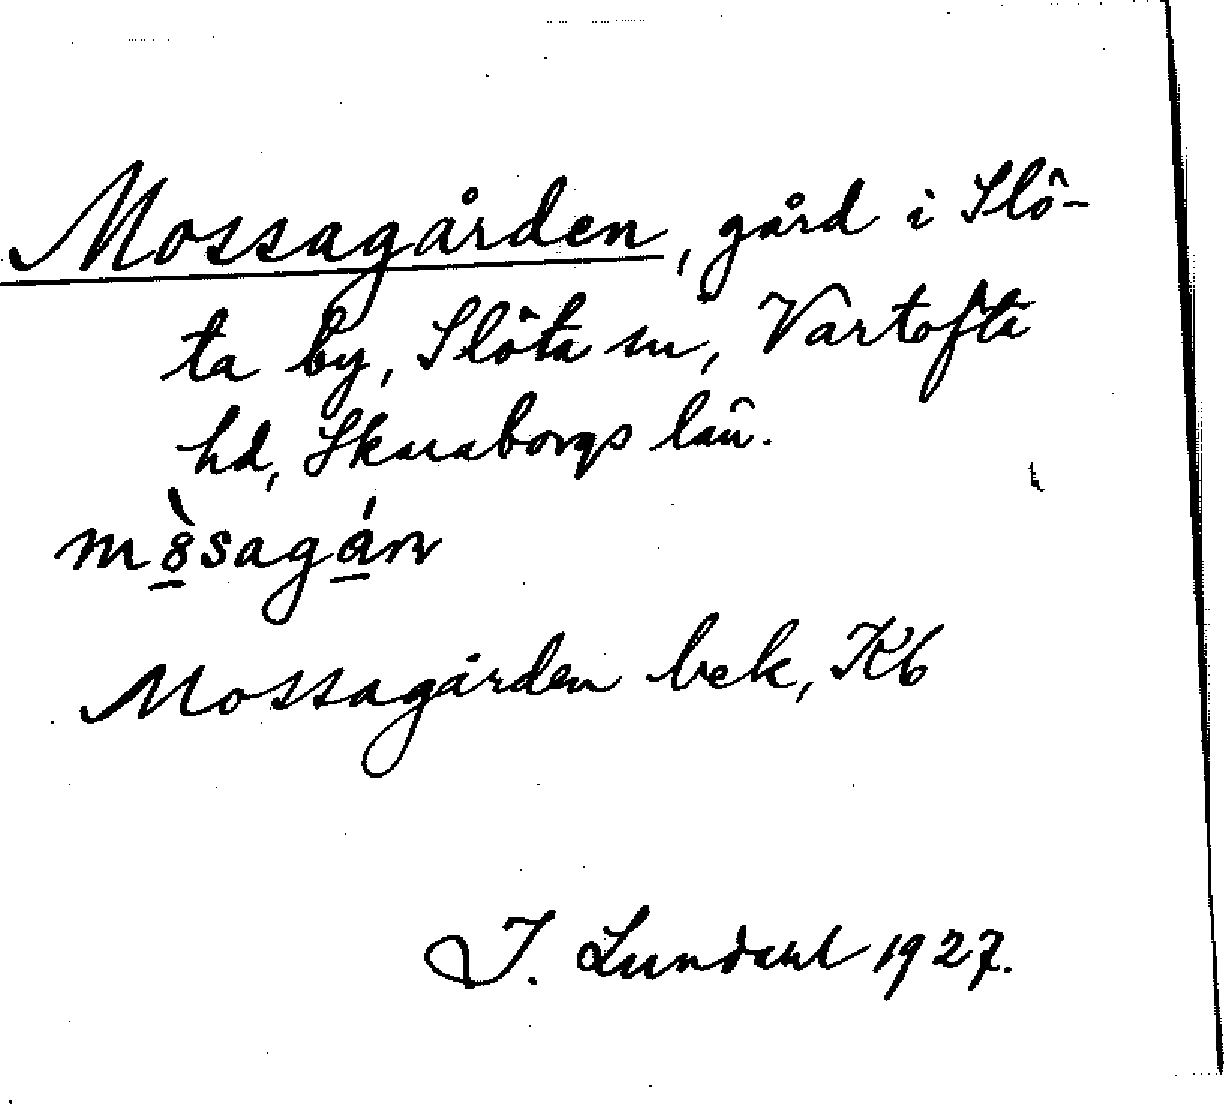 Mossagården, gård i Slö-
ta by, Slöta sn, Vartofta
hd, Skaraborgs län.
mòsagán
Mossagården bek, Kb
I. Lundahl 1927.